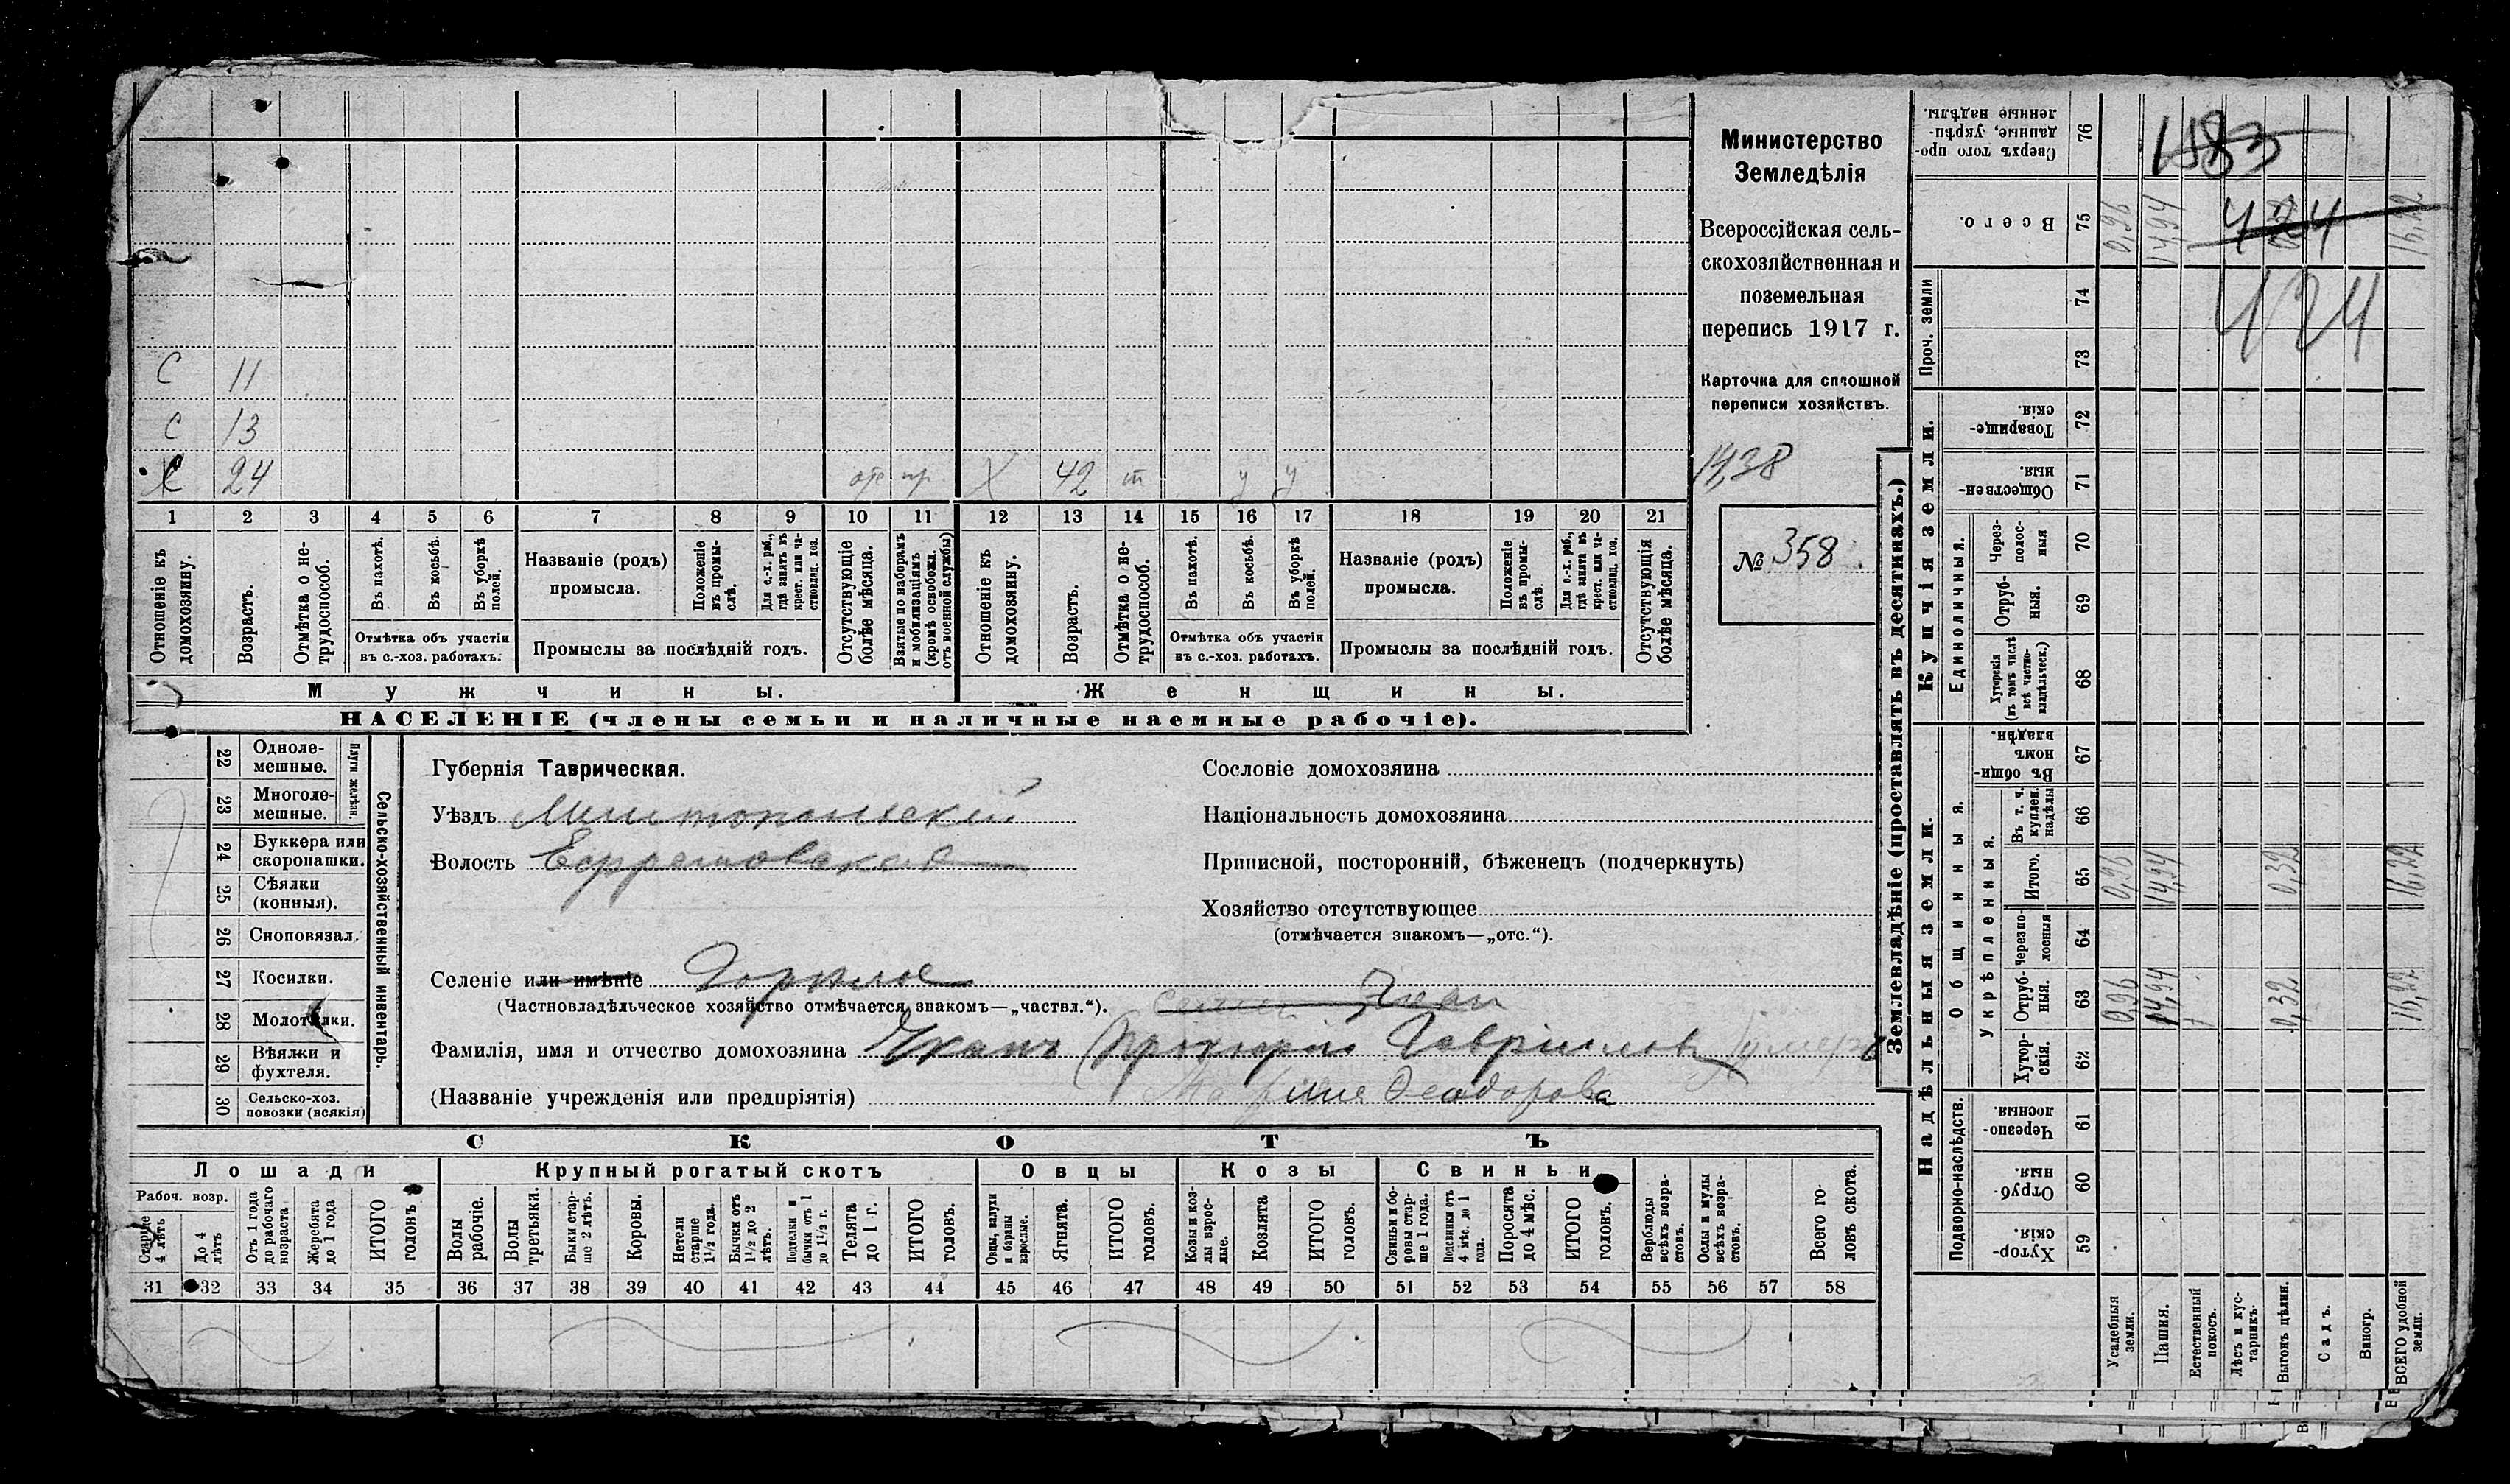 С 11
С 13
С 24 отс пр Х 42 т у у
1 2 3 4 5 6 7 8 9 10 11 12 13 14 15 16 17 18 19 20 21
Отношеніе къ домохозяину.
Возрастъ.
Отмѣтка о нетрудоспособ.
Въ пахотѣ.
Въ косьбѣ.
Въ уборкѣ полей.
Отмѣтка объ участіи
въ с.-хоз. работахъ.
Названіе (родъ)
промысла.
Положеніе въ промыслѣ.
Для с.-х. раб., гдѣ занятъ въ крест. или частновлад. хоз.
Промыслы за послѣдній годъ.
Отсутствующіе болѣе мѣсяца.
Взятые по наборамъ и мобилизаціямъ (кромѣ освобожд. отъ военной службы)
Отношеніе къ домохозяину.
Возрастъ.
Отмѣтка о нетрудоспособ.
Въ пахотѣ.
Въ косьбѣ.
Въ уборкѣ полей.
Отмѣтка объ участіи
въ с.-хоз. работахъ.
Названіе (родъ)
промысла.
Положеніе въ промыслѣ.
Для с.-х. раб., гдѣ занята въ крест. или частновлад. хоз.
Промыслы за послѣдній годъ.
Отсутствующія болѣе мѣсяца.
Мужчины.
Женщины.
НАСЕЛЕНІЕ (члены семьи и наличные наемные рабочіе).
Министерство
Земледѣлія
Всероссійская сель-
скохозяйственная и
поземельная
перепись 1917 г.
Карточка для сплошной
переписи хозяйствъ.
14,38
№ 358.
22 Одноле-
мешные.
23 Многоле-
мешные.
Плуги желѣзн.
24 Буккера или
скоропашки.
25 Сѣялки
(конныя).
26 Сноповязал.
27 Косилки.
28 Молотилки.
29 Вѣялки и
фухтеля.
30 Сельско-хоз.
повозки (всякія)
Сельско-хозяйственный инвентарь.
Губернія Таврическая.
Уѣздъ Мелитопольскій
Волость Ефремовская
Селеніе или имѣніе Горѣлое
(Частновладѣльческое хозяйство отмѣчается знакомъ—„частвл.“).
Фамилія, имя и отчество домохозяина Прохоръ Гавриловъ умеръ
(Названіе учрежденія или предпріятія) Феодорова
Сословіе домохозяина
Національность домохозяина
Приписной, посторонній, бѣженецъ (подчеркнуть)
Хозяйство отсутствующее
(отмѣчается знакомъ—„отс.“).
СКОТЪ
Лошади
Крупный рогатый скотъ
Овцы
Козы
Свиньи
Рабоч. возр.
Старше 4 лѣтъ
До 4 лѣтъ
Отъ 1 года до рабочаго возраста
Жеребята до 1 года
ИТОГО головъ.
Волы рабочіе.
Волы третьяки.
Быки старше 2 лѣтъ.
Коровы.
Нетели старше 1½ года.
Бычки отъ 1½ до 2 лѣтъ.
Подтелки и бычки отъ 1 до 1½ г.
Телята до 1 г.
ИТОГО головъ.
Овцы, валухи и бараны взрослые.
Ягнята.
ИТОГО головъ.
Козы и козлы взрослые.
Козлята
ИТОГО головъ.
Свиньи и боровы старше 1 года.
Подсвинки отъ 4 мѣс. до 1 года.
Поросята до 4 мѣс.
ИТОГО головъ.
Верблюды всѣхъ возрастовъ.
Ослы и мулы всѣхъ возрастовъ.
Всего головъ скота.
31 32 33 34 35 36 37 38 39 40 41 42 43 44 45 46 47 48 49 50 51 52 53 54 55 56 57 58
Землевладѣніе (проставлять въ десятинахъ.)
Купчія земли.
Надѣльныя земли.
Сверхъ того проданные, укрѣпленные надѣлы. 76 1183
Всего. 75 0,96 14,94 424 0,32 16,22
Проч. земли 74 424
73
Товарищескія. 72
Общественныя. 71
Единоличныя.
Черезполосныя 70
Отрубныя. 69
Хуторскія (въ томъ числѣ всѣ частновладѣльческ.) 68
Общинныя.
Въ общинномъ владѣн. 67
Укрѣпленныя.
Въ т. ч. куплен. надѣлы 66
Итого. 65 0,96 14,94 0,32 16,22
Черезполосныя 64
Отрубныя. 63 0,96 14,94 0,32 16,22
Хуторскія. 62
Подворно-наслѣдств.
Черезполосныя. 61
Отрубныя. 60
Хуторскія. 59
Усадебныя земли.
Пашня.
Естественный покосъ.
Лѣсъ и кустарникъ.
Выгонъ цѣлин.
Садъ.
Виногр.
ВСЕГО удобной земли.